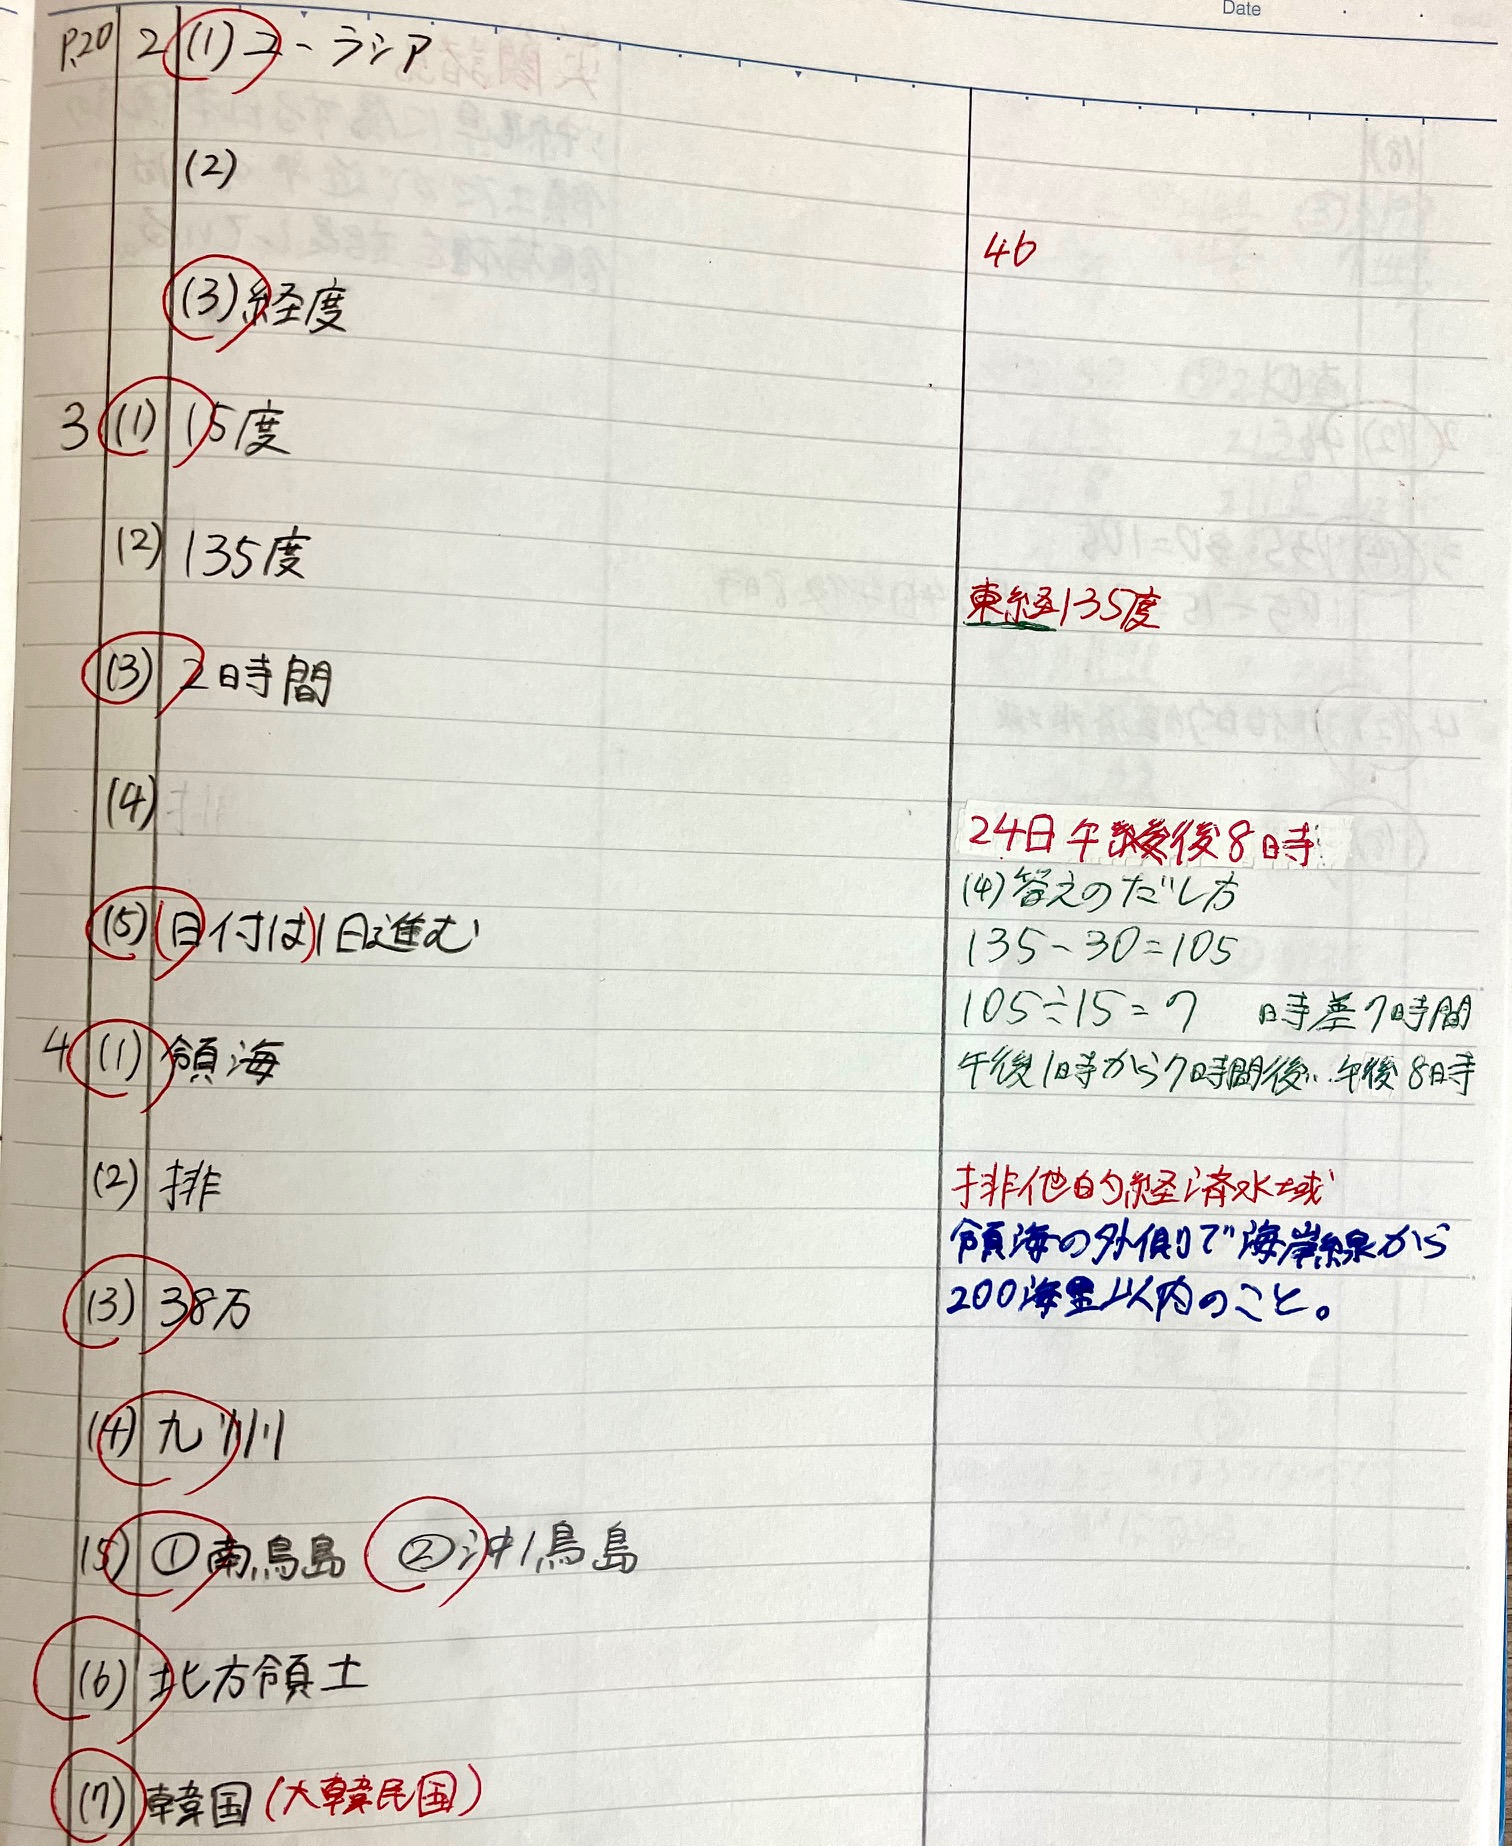 Date
P.20 2 (1) ユーラシア
(2)
46
(3) 経度
3 (1) 15度
(2) 135度
東経135度
(3) 2時間
(4)
24日午後8時
(4) 答えのだし方
(5) (日付は)1日進む
135-30=105
105÷15=7 時差7時間
4 (1) 領海
午後1時から7時間後… 午後8時
(2) 排
排他的経済水域
領海の外側で海岸線から
200海里以内のこと。
(3) 38万
(4) 九州
(5) ①南鳥島 ②沖ノ鳥島
(6) 北方領土
(7) 韓国(大韓民国)